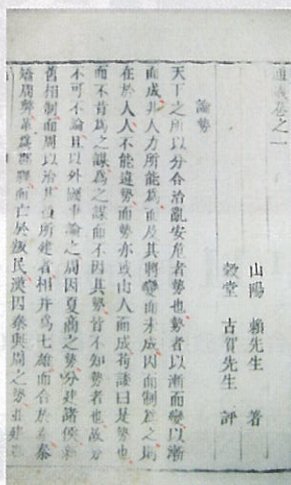 通議卷之一
山陽 賴先生 著
穀堂 古賀先生 評
論勢
天下之所以分合治亂安危者勢也勢者以漸而變以漸
而成非人力所能為而及其將變而未成因而制為之則
在於人人不能違勢而勢亦或由人而成苟諉曰是勢也
而不肯為之謀為之謀而不因其勢皆不知勢者也故勢
不可不論且以外國事論之周因夏商之勢分建諸侯新
舊相制而周以治其後所建者相并為七雄而合於秦秦
矯周勢革為郡縣而亡於叛民漢因秦與周之勢並建